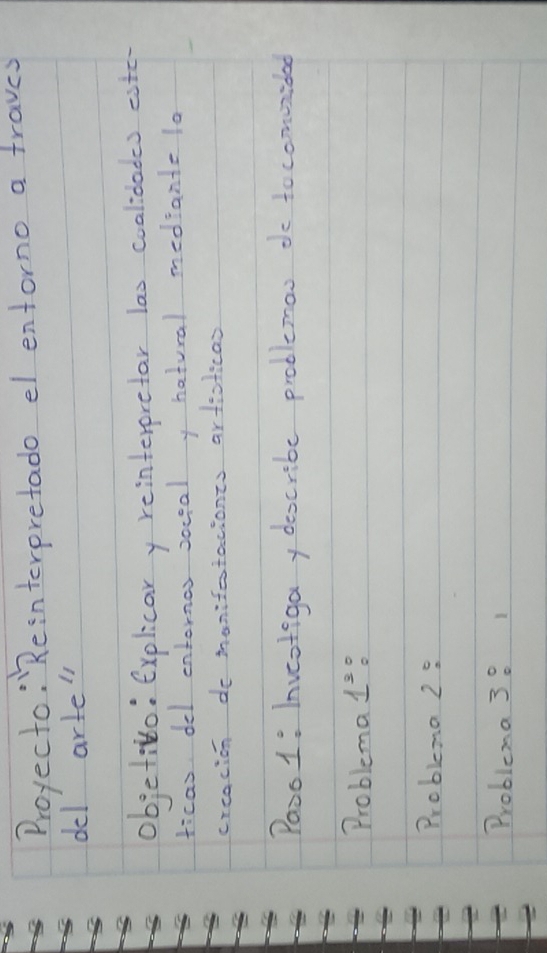 Proyecto: "Reinterpretado el entorno a traves
del arte"
Objetivo: Explicar y reinterpretar las cualidades este-
ticas. del entornos social y natural mediante la
creación de manifestaciones artisticas
Paso 1: Investiga y describe problemas de tu comunidad
Problema 1:
Problema 2:
Problema 3: